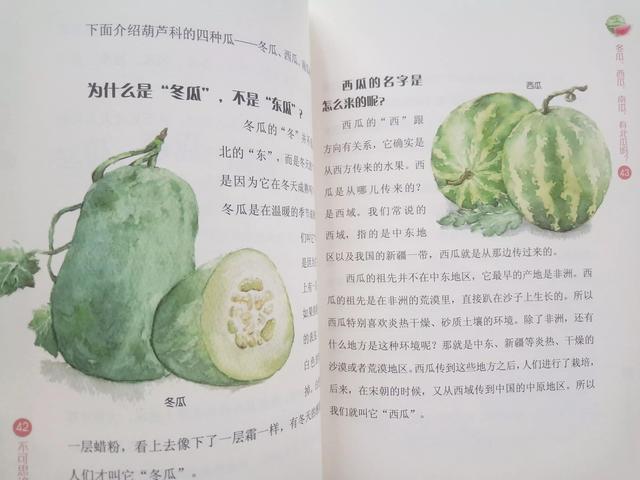 下面介绍葫芦科的四种瓜——冬瓜、西瓜、
为什么是“冬瓜”，不是“东瓜”？
冬瓜的“冬”并不
北的“东”，而是冬天
是因为它在冬天成熟
冬瓜是在温暖的季节
们叫它
是因为
上有一
如果
的表
白色
掉，
一层蜡粉，看上去像下了一层霜一样，有冬天的
人们才叫它“冬瓜”。
冬瓜
42
不可思
西瓜的名字是
怎么来的呢？
西瓜的“西”跟
方向有关系，它确实是
从西方传来的水果。西
瓜是从哪儿传来的？
是西域。我们常说的
西域，指的是中东地
区以及我国的新疆一带，西瓜就是从那边传过来的。
西瓜的祖先并不在中东地区，它最早的产地是非洲。西
瓜的祖先是在非洲的荒漠里，直接趴在沙子上生长的。所以
西瓜特别喜欢炎热干燥、砂质土壤的环境。除了非洲，还有
什么地方是这种环境呢？那就是中东、新疆等炎热、干燥的
沙漠或者荒漠地区。西瓜传到这些地方之后，人们进行了栽培，
后来，在宋朝的时候，又从西域传到中国的中原地区。所以
我们就叫它“西瓜”。
西瓜
冬瓜、西瓜、南瓜，有北瓜吗？
43